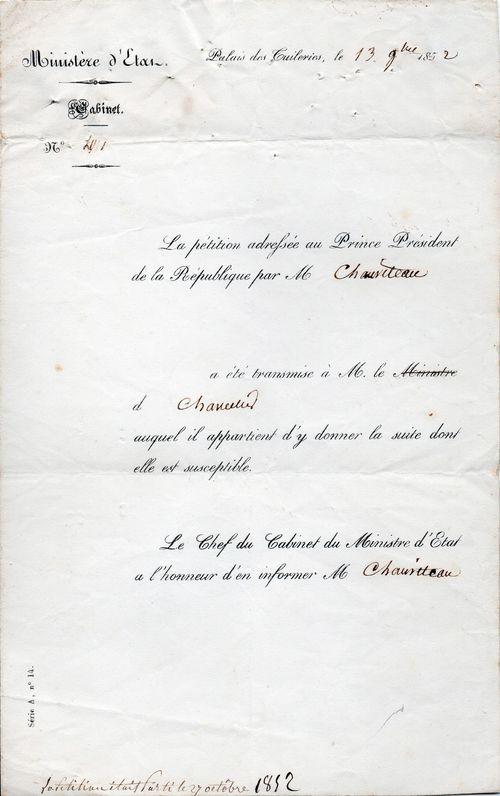 Ministère d'Etat.
Palais des Tuileries, le 13 9bre 1852
Cabinet.
N°
La pétition adressée au Prince Président
de la République par M Chauviteau
a été transmise à M. le Ministre
d Chancelier
auquel il appartient d'y donner la suite dont
elle est susceptible.
Le Chef du Cabinet du Ministre d'Etat
a l'honneur d'en informer M Chauviteau
Série A, n° 14.
la petition était parti le 27 octobre 1852